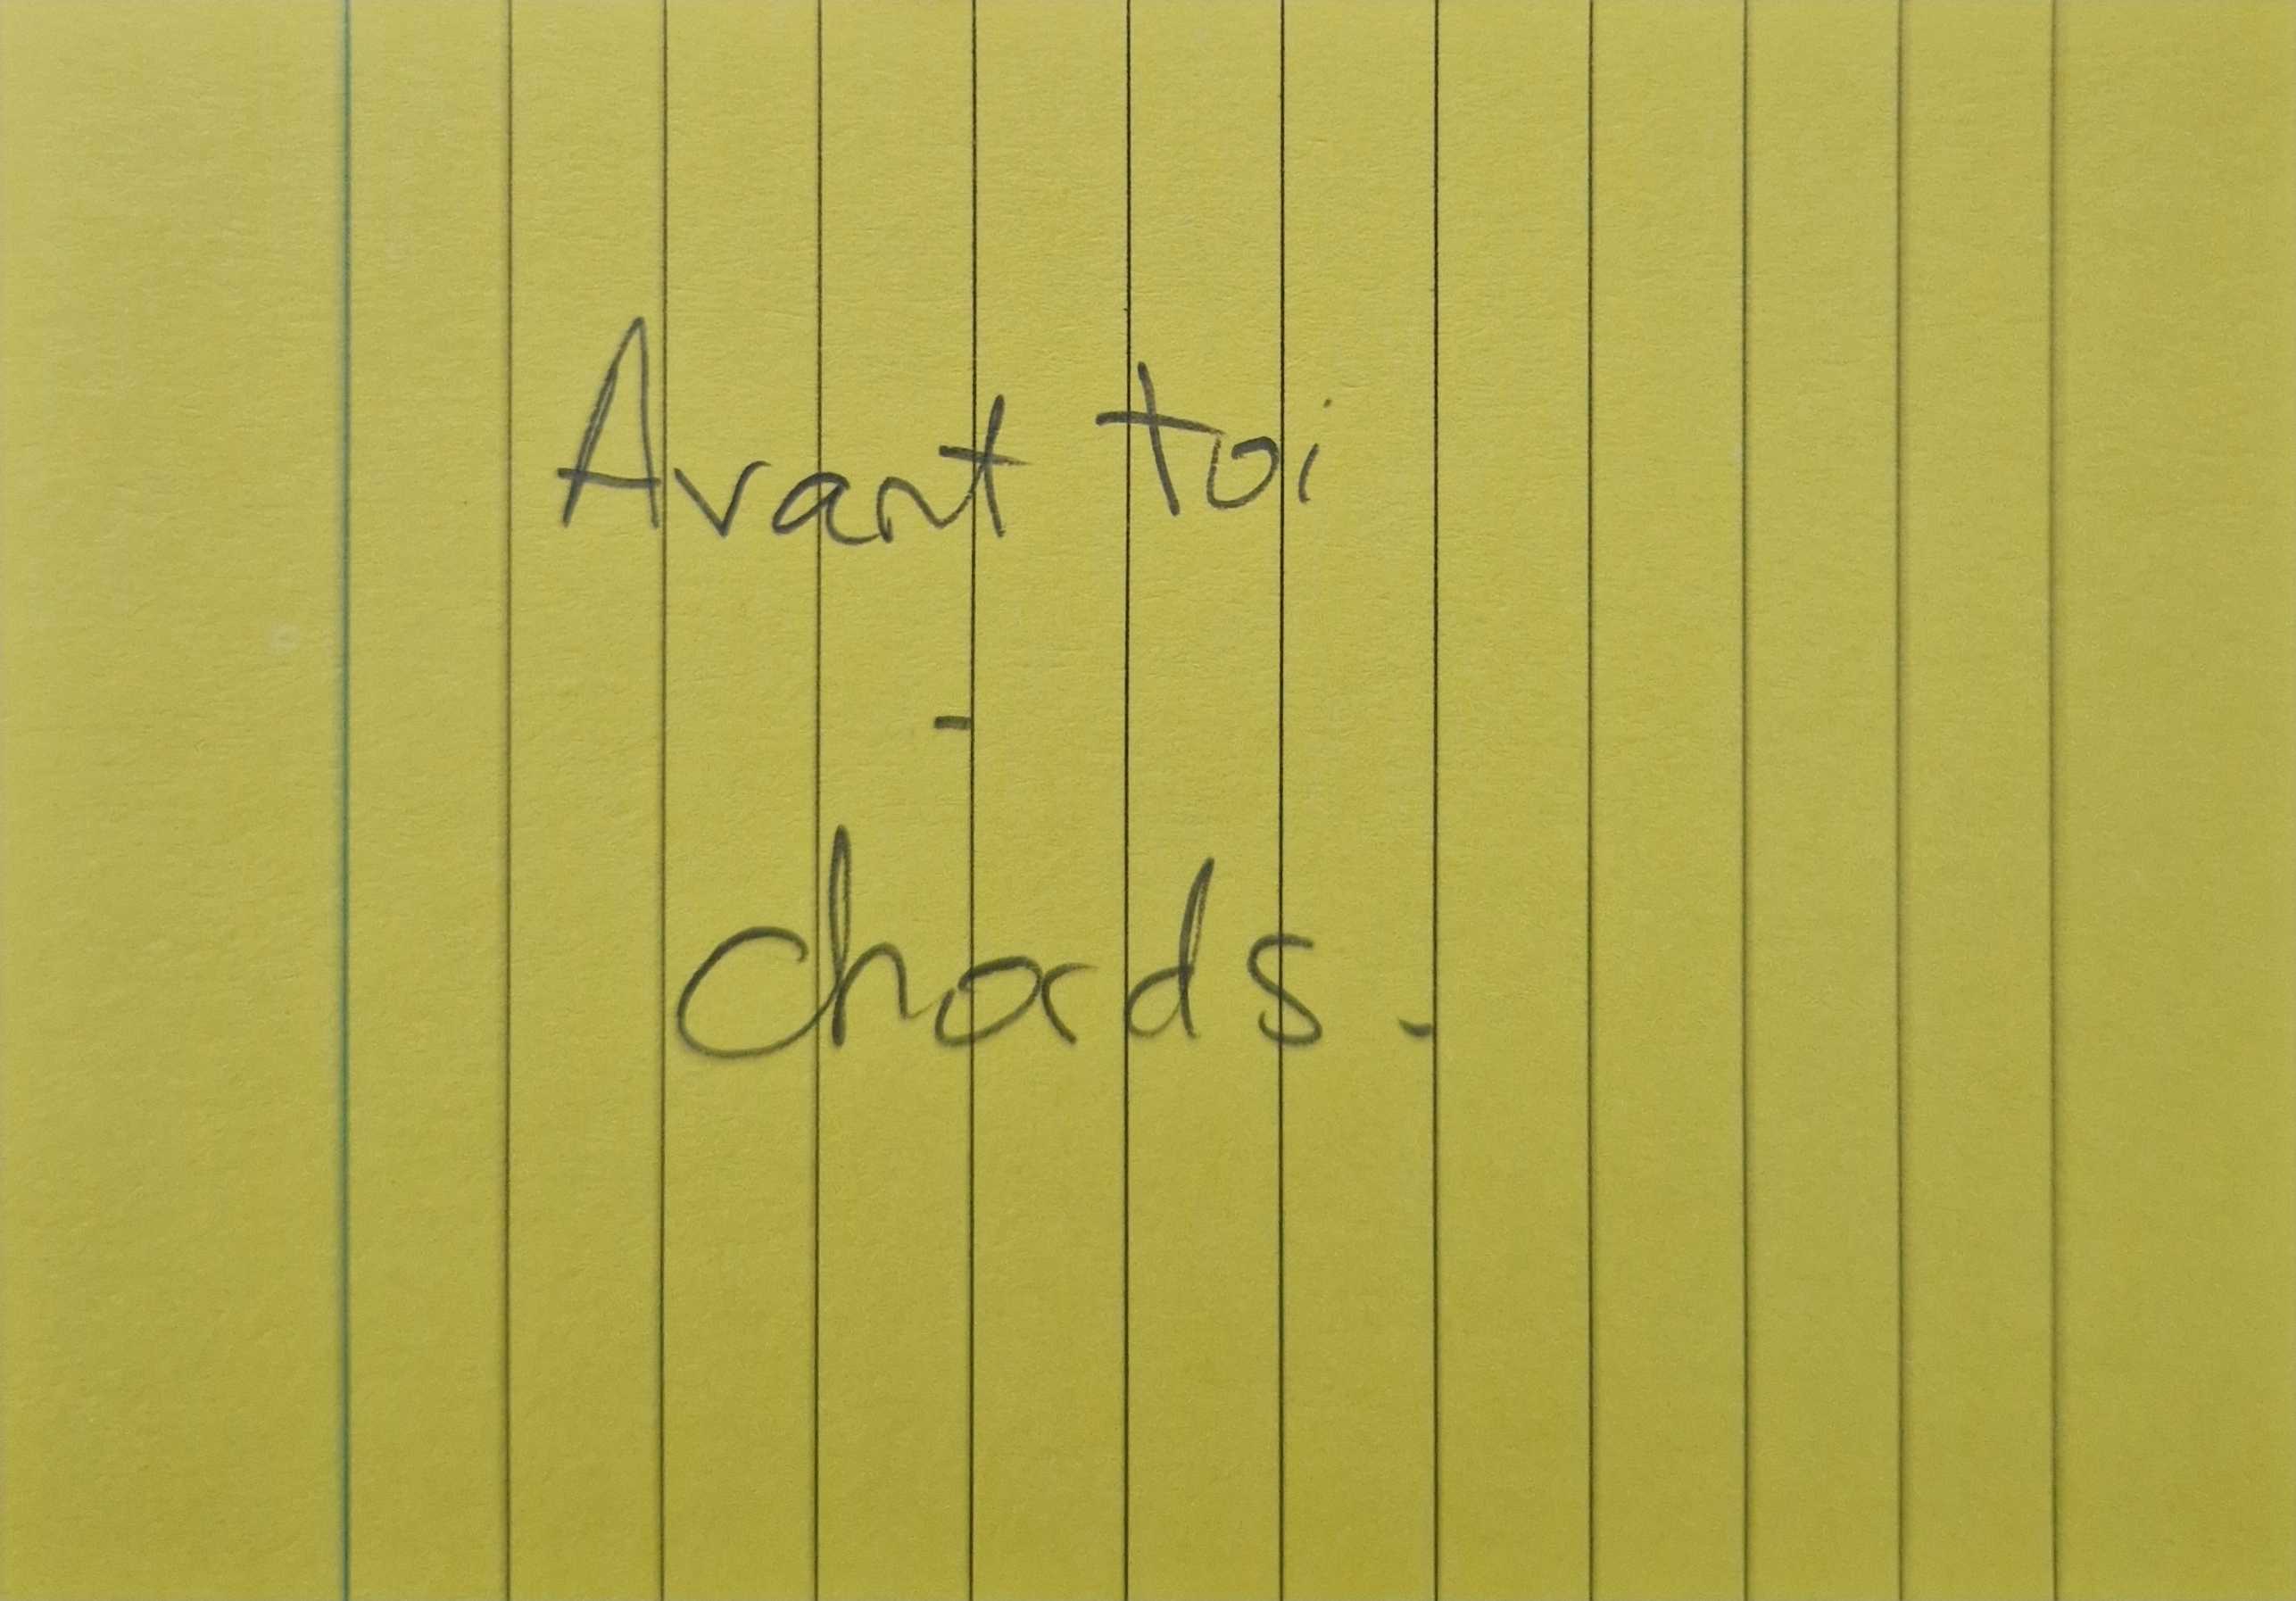 Avant toi
-
chords.